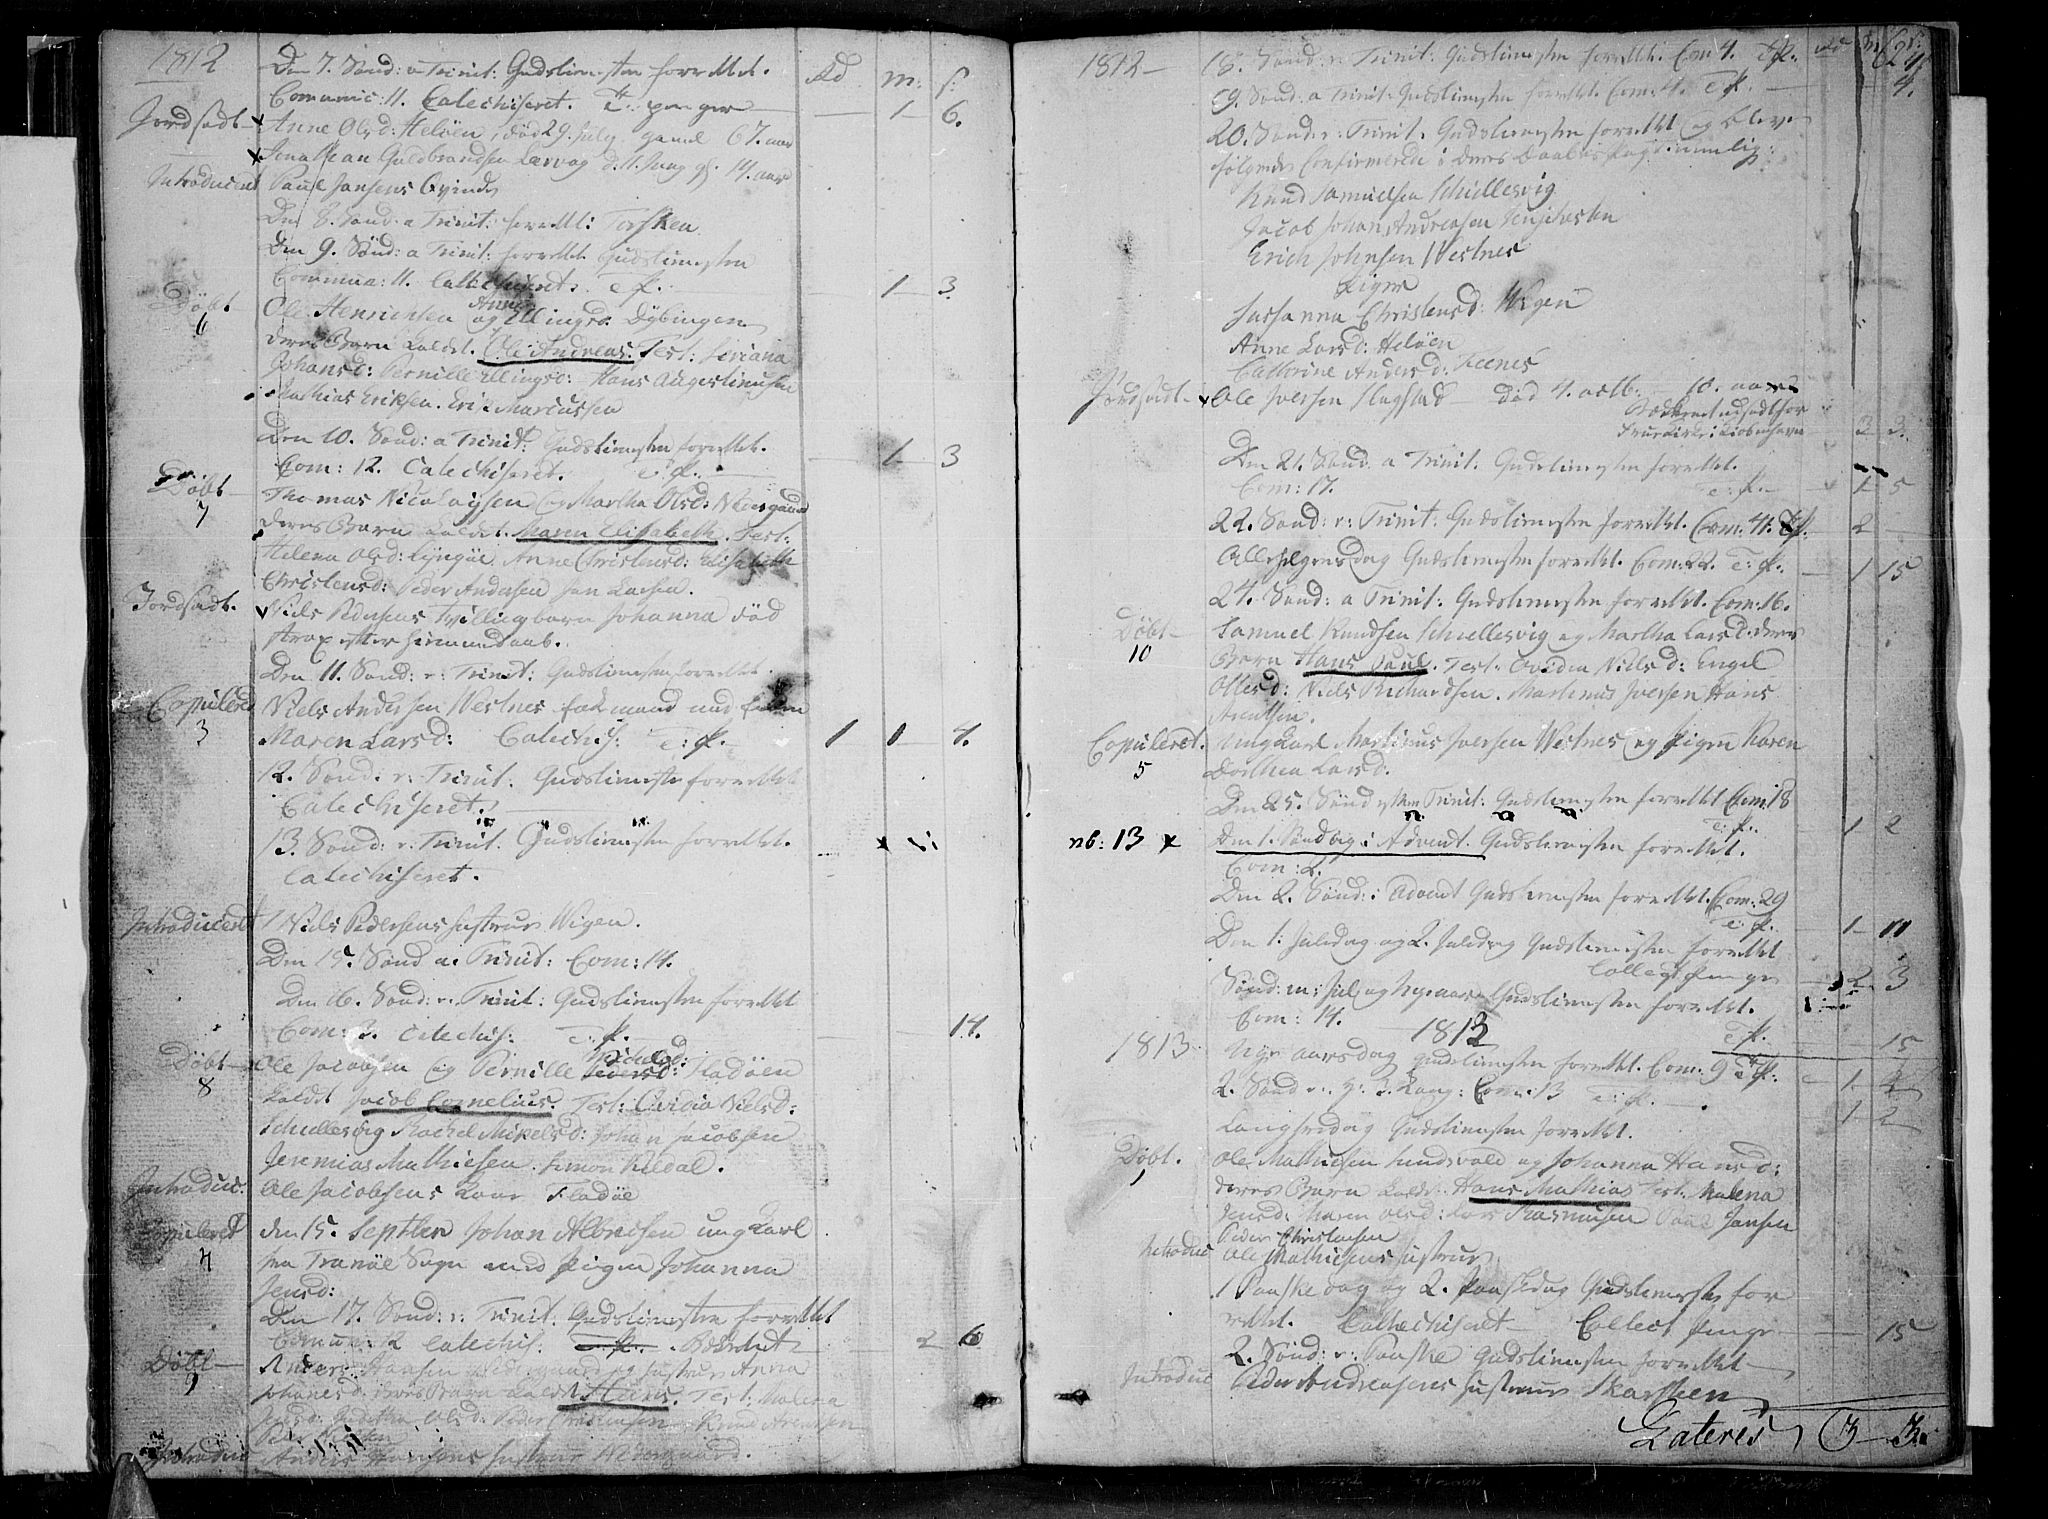 1812
Den 7. Sönd: a Trinit: Gudstienesten forrettet.
Rd m: s:
Communic: 11. Catechiseret. T. penger 1 6.
Jordfæst
Anne Olsd: Heløen, död 29. July gaml 67. aar
Jonathan Guldbrandsen d. 11. gl. 14. aar
Introduceret Paul Jansens Qvinde
Den 8. Sönd: a Trinit: forrettet: Torsken
Den 9. Sönd: a Trinit: forrettet Gudstienesten
Commun: 11. Catechiseret. T. p. 1 3.
Döbt
6
Ole Henrichsen og Anne Ellingsd. Dybingen
deres Barn kaldet. Ole Andreas. Test: Siviana
Johansd: Pernille Ellingsd: Hans Augestinusen
Mathias Eriksen. Erik Marcussen
Den 10. Sönd: a Trinit: Gudstienesten forrettet.
Com: 12. Catechiseret. T. p. 1 3
Döbt
7
Thomas Nicolaysen og Martha Olsd: Nedergaard
deres Barn kaldet. Maren Elisabeth. Test:
Helena Olsd: Lyngöe Anne Christensd: Elisabeth
Christensd: Peder Andersen Jan Larsen.
Jordfæst.
Niels Pedersens Tvillingbarn Johanna död
strax efter hiemmedaab.
Den 11. Sönd: a: Trinit: Gudstienesten forrettet.
Copuleret
3
Niels Andersen Westnes Enkemand med Enken
Maren Larsd: Catechis: T: p. 1 1 4.
12. Sönd: a: Trinit: Gudstieneste forrettet
Catechiseret.
13. Sönd: a: Trinit: Gudstienesten forrettet.
Catechiseret.
Introduceret Niels Pedersens hustrue Wigen.
Den 15. Sönd a. Trinit: Com: 14.
Den 16. Sönd: a. Trinit: Gudstienesten forrettet
Com: 2. Catechis: T: p. 14.
Döbt
8
Ole Jacobsen og Pernille Michelsd: Flaköen
kaldet Jacob Cornelius. Test: Ovidia Nielsd:
Schiellesvig Rachel Mikelsd: Johan Jacobsen
Jeremias Mathiesen. Simon Kildal.
Introduc: Ole Jacobsens Kone Flaköe
Copuleret
4
den 15. Septbr Johan Albretsen ung Karl
fra Tranöe Sogn med Pigen Johanna
Jensd:
Den 17. Sönd: a: Trinit: Gudstienesten forrettet
Commun: 12 Catechis: 2 6
Döbt
9
Anders Hansen Nedergaard og hustrue Anna
Johanesd: deres Barn kaldet Hans. Test: Malena
Jensd: Olsd: Peder Christensen Knud Arentsen
Introduc Anders Hansens hustrue Nedergaard.
1812
18. Sönd: a: Trinit: Gudstienesten forrettet. Com 4. T. p.
19. Sönd: a Trinit: Gudstienesten forrettet. Com: 4. T. p. 4.
20. Sönd: a: Trinit: Gudstienesten forrettet og bleve
fölgende Confirmerede i deres Daabes Pagt nemlig:
Knud Samuelsen Schiellesvig
Jacob Johan Andreasen
Erich Johnsen Westnes
Piger
Susanna Christensd: Wigen
Anne Larsd: Heløen
Cathrine Andersd: Teenes
Jordfæst
Ole Iversen Flagstad död 4. octb: 10. aar
Bækkenet udsadt for
Frue Kirke i Kiöbenhavn 3 3.
Den 21. Sönd. a Trinit: Gudstienesten forrettet.
Com: 17. T: p. 1 5
22. Sönd: a: Trinit: Gudstienesten forrettet. Com: 41. T. p. 2
Allehelgensdag Gudstienesten forrettet. Com: 22. T: p. 1 15
24. Sönd: a Trinit: Gudstienesten forrettet. Com: 16.
Döbt
10
Samuel Knudsen Schiellesvig og Martha Larsd: deres
Barn Hans Paul. Test: Ovidia Nielsd: Engel
Ollesd: Niels Richardsen. Martinus Iversen Hans
Arentsen.
Copuleret.
5
Ung Karl Martinus Iversen Westnes og Pigen Karen
Dorthea Larsd.
Den 25. Sönd efter Trinit: Gudstienesten forrettet Com: 18
T: p. 1 2
nb: 13 x Den 1. Söndag i Advent. Gudstienesten forrettet.
Com: 2.
Den 2. Sönd: i Advent Gudstienesten forrettet. Com: 29
T: p. 1 11
Den 1: Juledag og 2. Juledag Gudstienesten forrettet
Collect Penge 2 3
Sönd: m: Jul og Nyeaar Gudstienesten forrettet.
Com: 14. T. p. 15
1813
1813
Nye aarsdag Gudstienesten forrettet. Com: 9 T. p. 1 4
2. Sönd a: H: 3. Kong: Com: 13 T: p. 1 2
Langfredag Gudstienesten forrettet.
Döbt.
1
Ole Mathiesen Sundsvold og Johanna Hansd:
deres Barn kaldet Hans Mathias Test: Malena
Jensd: Maren Olsd: Lars Rasmusen Paul Jansen
Peder Christensen
Introduc Ole Mathiesens hustrue
1 Paaskedag og 2. Paaskedag Gudstienesten for
rettet. Catechiseret Collect Penge 15
2. Sönd: a: Paaske Gudstienesten forrettet
Introduc Peder Andreasens hustrue Skarsteen
Lateris 3 3.